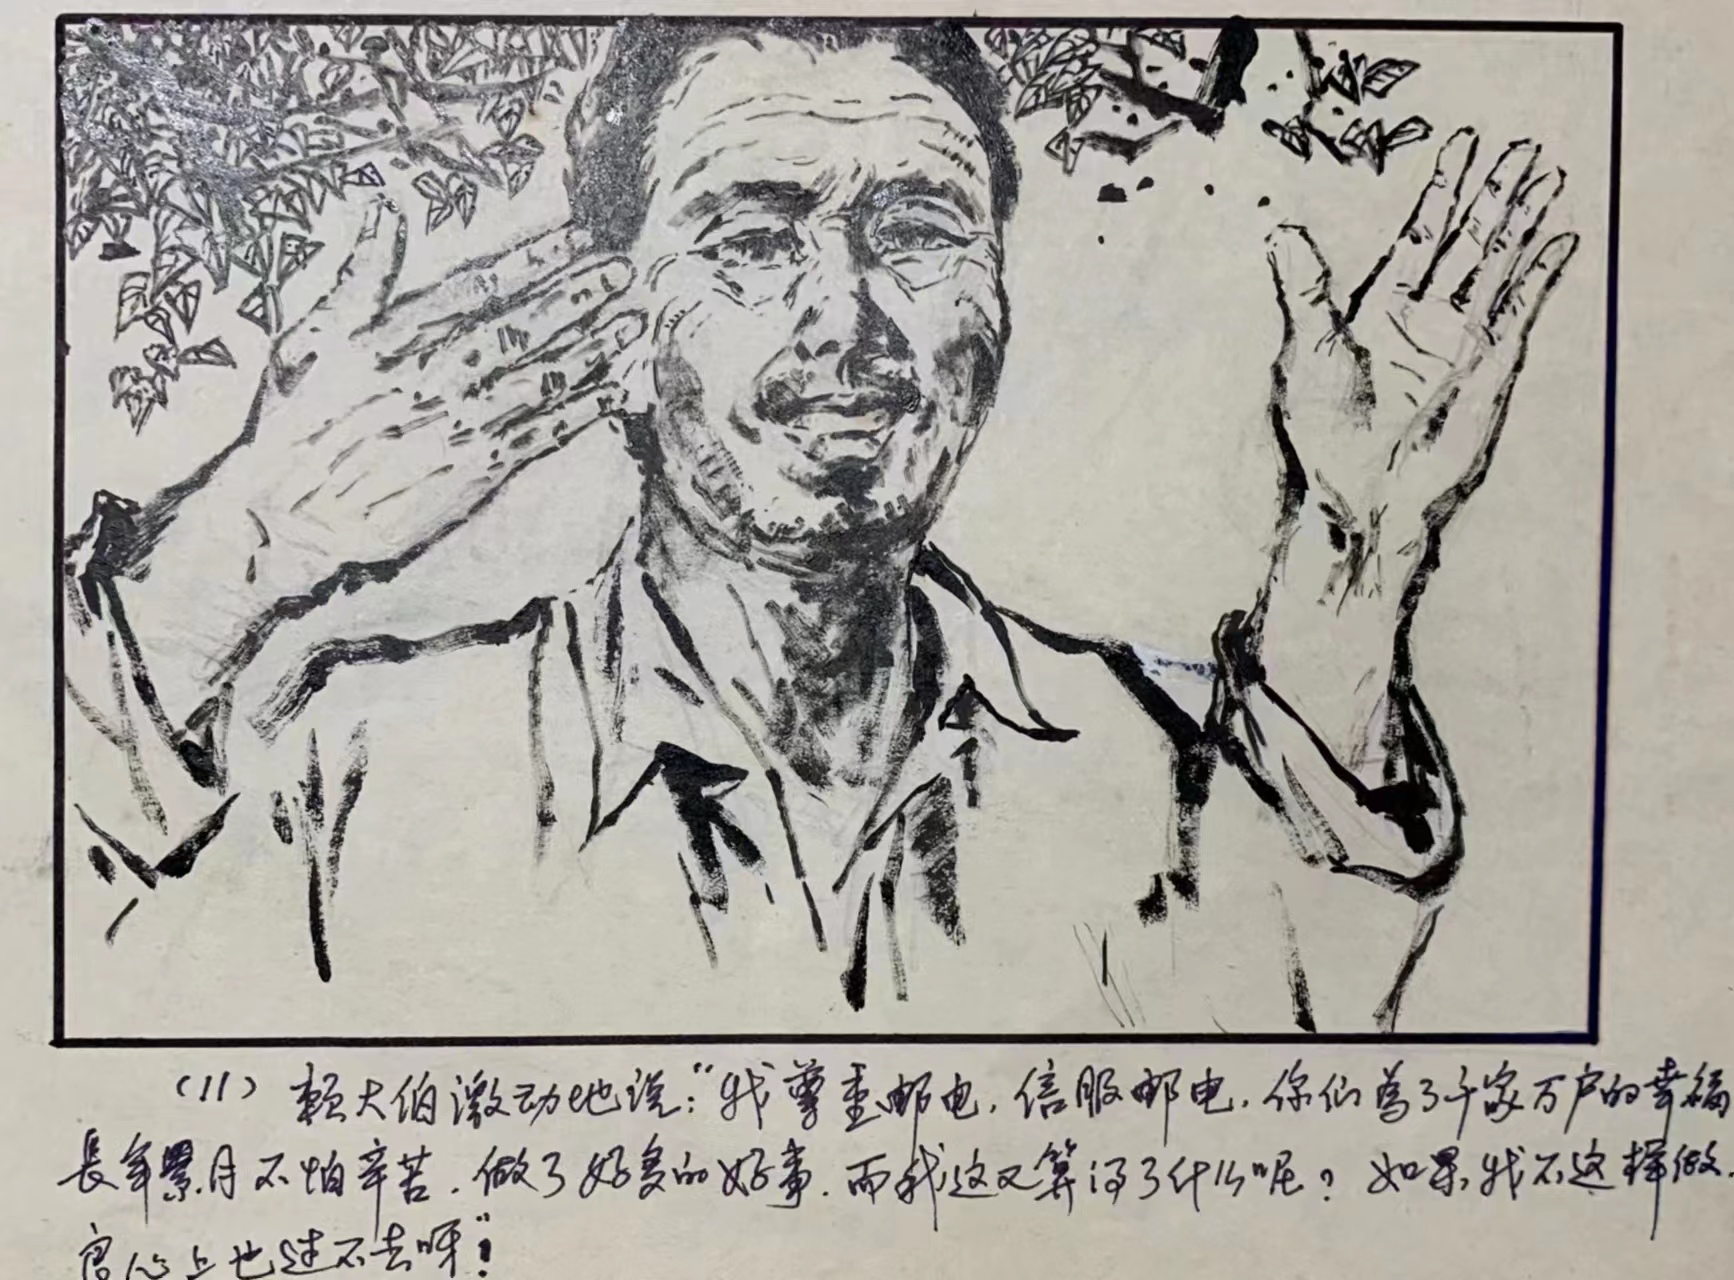 （11）赖大伯激动地说：“我尊重邮电，信服邮电，你们為了千家万户的幸福
長年累月不怕辛苦，做了好多的好事，而我这又算得了什么呢？如果我不这样做，
良心上也过不去呀”！